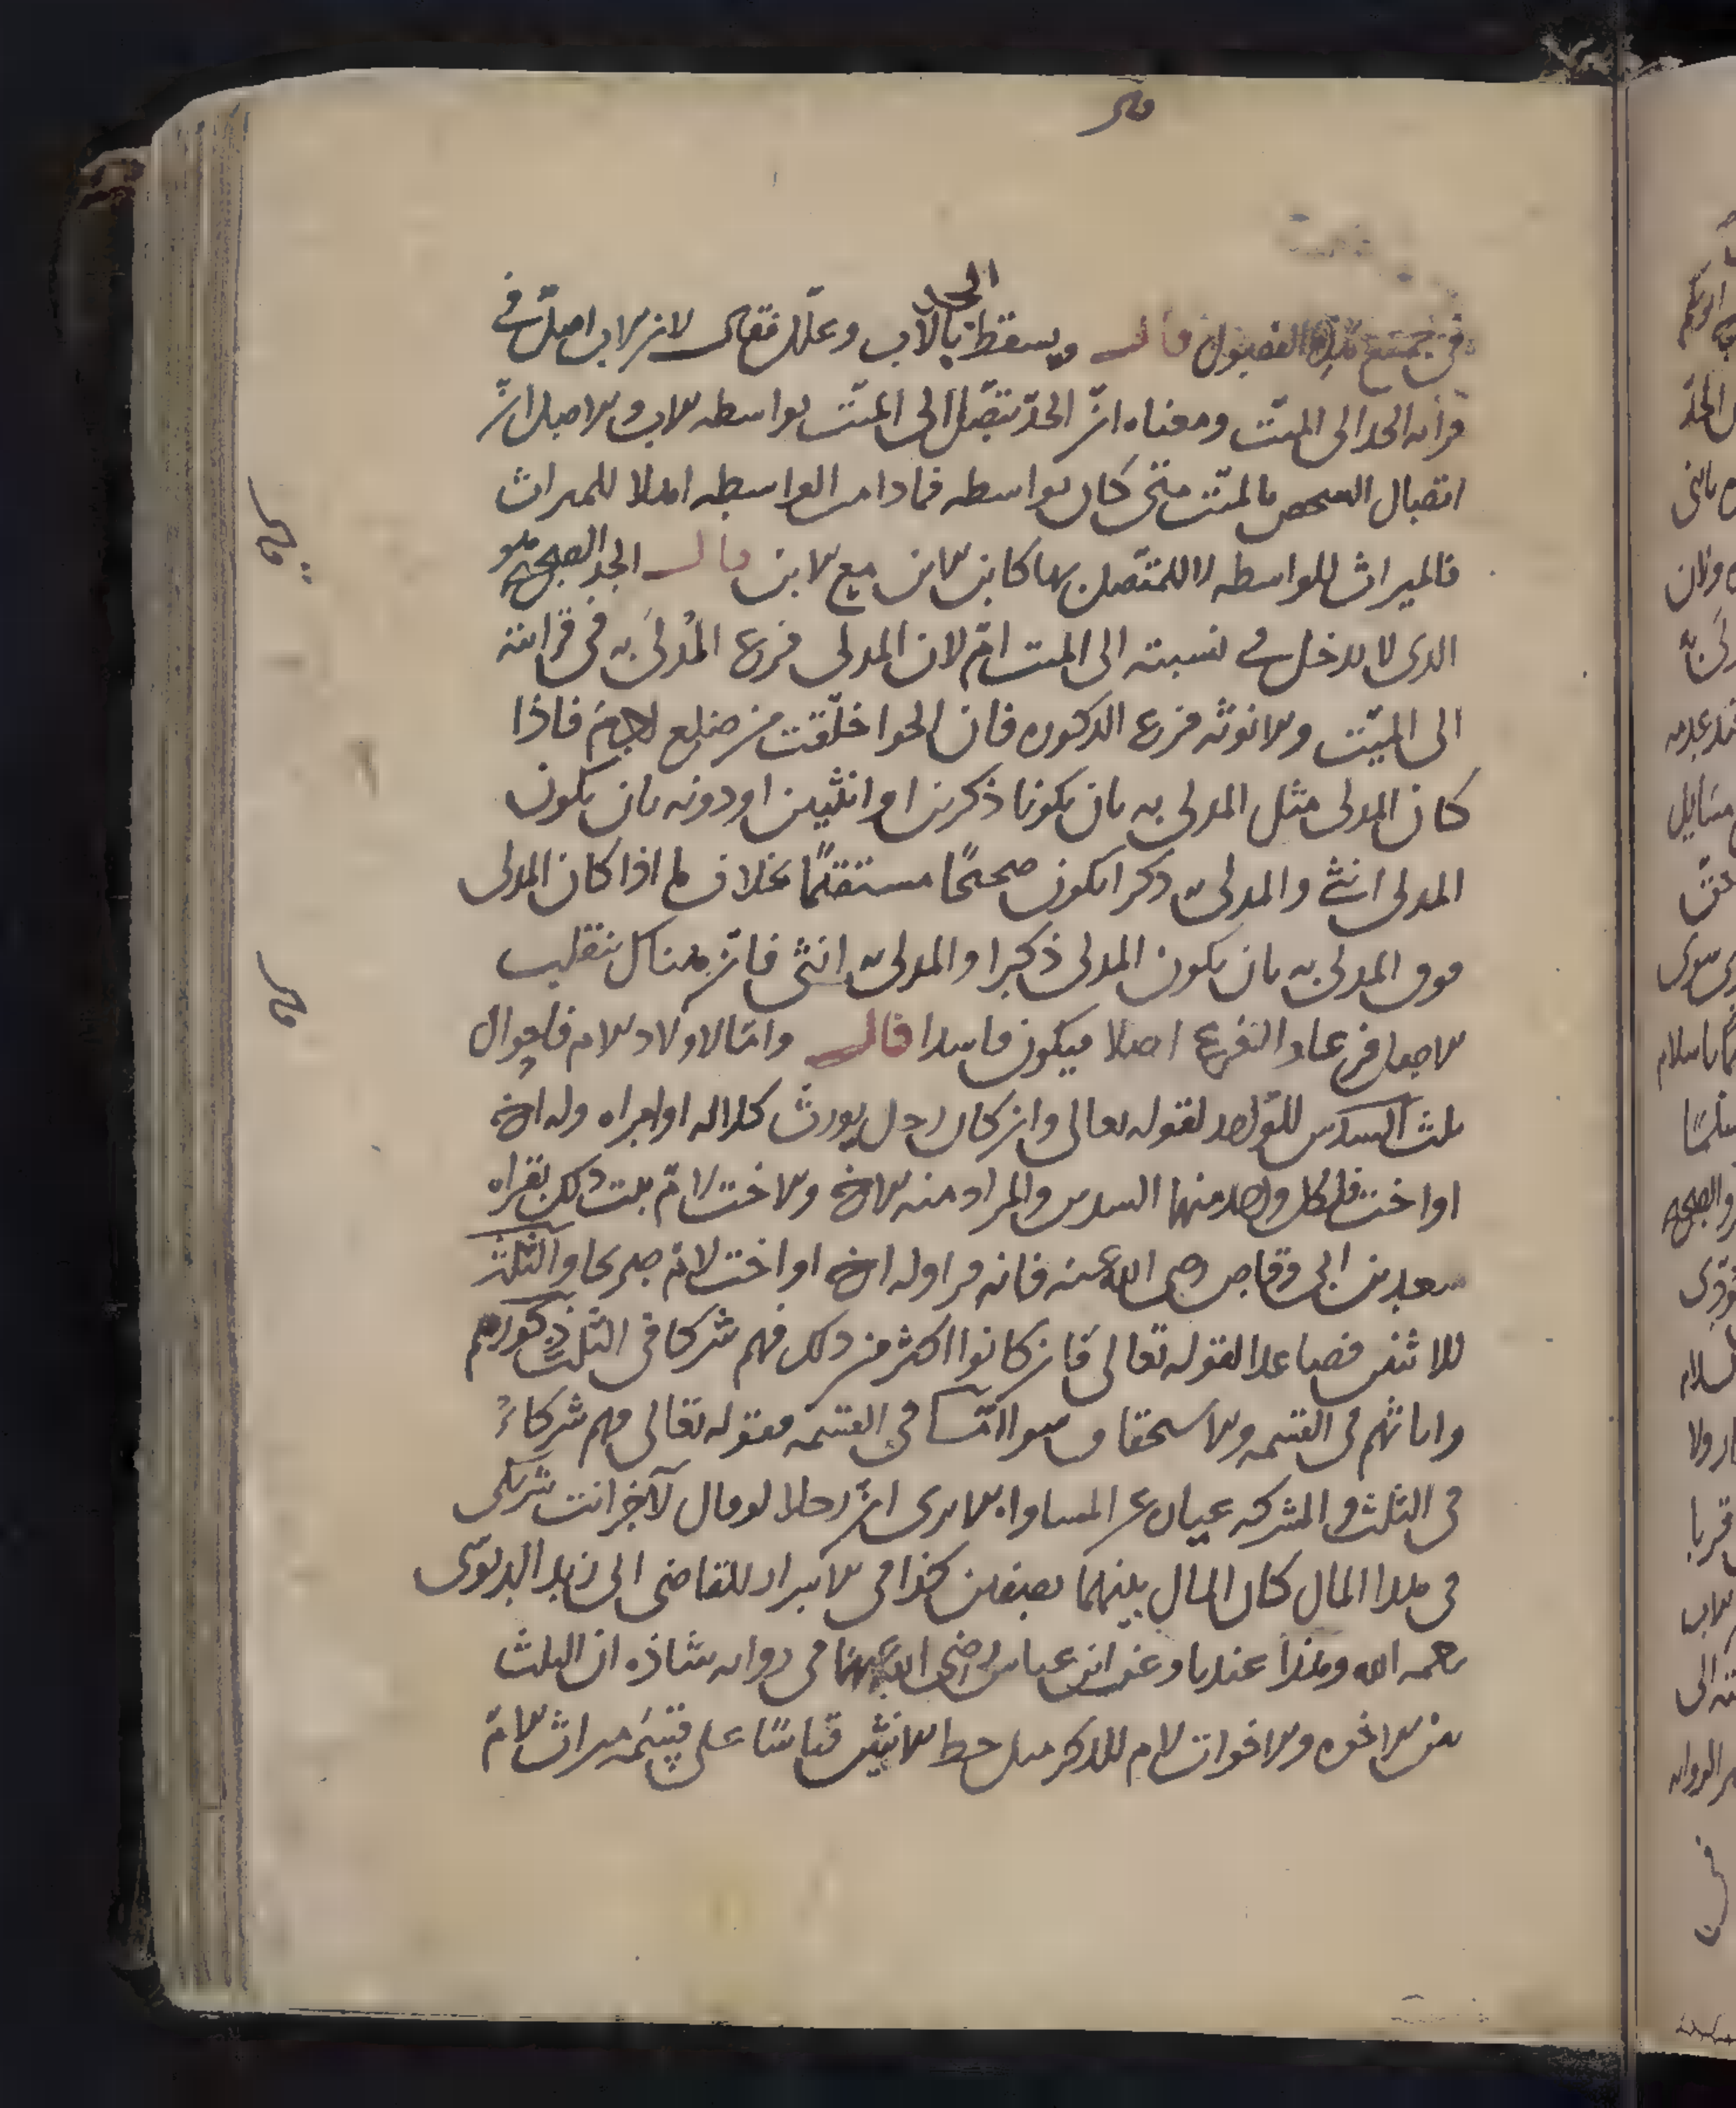 في جميع هذه الفصول قال ويسقط الجد بالاب وعلل فقال لان الاب اصل في
قرابه الجد الى الميت ومعناه ان الجد يتصل الى الميت بواسطه الاب والاصل ان
اتصال الشخص بالميت متى كان بواسطه فما دامت الواسطه اهلا للميراث
فالميراث للواسطه لا للمتصل بها كابن الابن مع الابن قال الجد الصحيح هو
الذى لا يدخل في نسبته الى الميت ام لان المدلى فرع المدلى به في قرابته
الى الميت والانوثه فرع الذكوره فان الحوا خلقت من ضلع ادم فاذا
كان المدلى مثل المدلى به بان يكونا ذكرين او انثيين او دونه بان يكون
المدلى انثى والمدلى به ذكرا يكون صحيحا مستقيما بخلاف ما اذا كان المدلى
فوق المدلى به بان يكون المدلى ذكرا والمدلى به انثى فان هناك ينقلب
الاصل فرعا والفرع اصلا فيكون فاسدا قال واما لاولاد الام فاحوال
ثلث السدس للواحد لقوله تعالى وان كان رجل يورث كلاله او امراه وله اخ
او اخت فلكل واحد منهما السدس والمراد منه الاخ والاخت لام يثبت ذلك بقراه
سعد بن ابى وقاص رضى الله عنه فانه قرا وله اخ او اخت لام صريحا والثلث
للاثنين فصاعدا لقوله تعالى فان كانوا اكثر من ذلك فهم شركا في الثلث ذكورهم
واناثهم في القسمه والاستحقاق سوا اما في القسمه فقوله تعالى فهم شركاء
في الثلث والشركه عباره عن المساواه الا يرى ان رجلا لو قال لآخر انت شريكى
في هذا المال كان المال بينهما نصفين كذا في الاسرار للقاضى ابى زيد الدبوسى
رحمه الله وهذا عندنا وعن ابن عباس رضى الله عنهما في روايه شاذه ان الثلث
بين الاخوه والاخوات لام للذكر مثل حظ الانثيين قياسا على قسمه ميراث الام
قال
قال